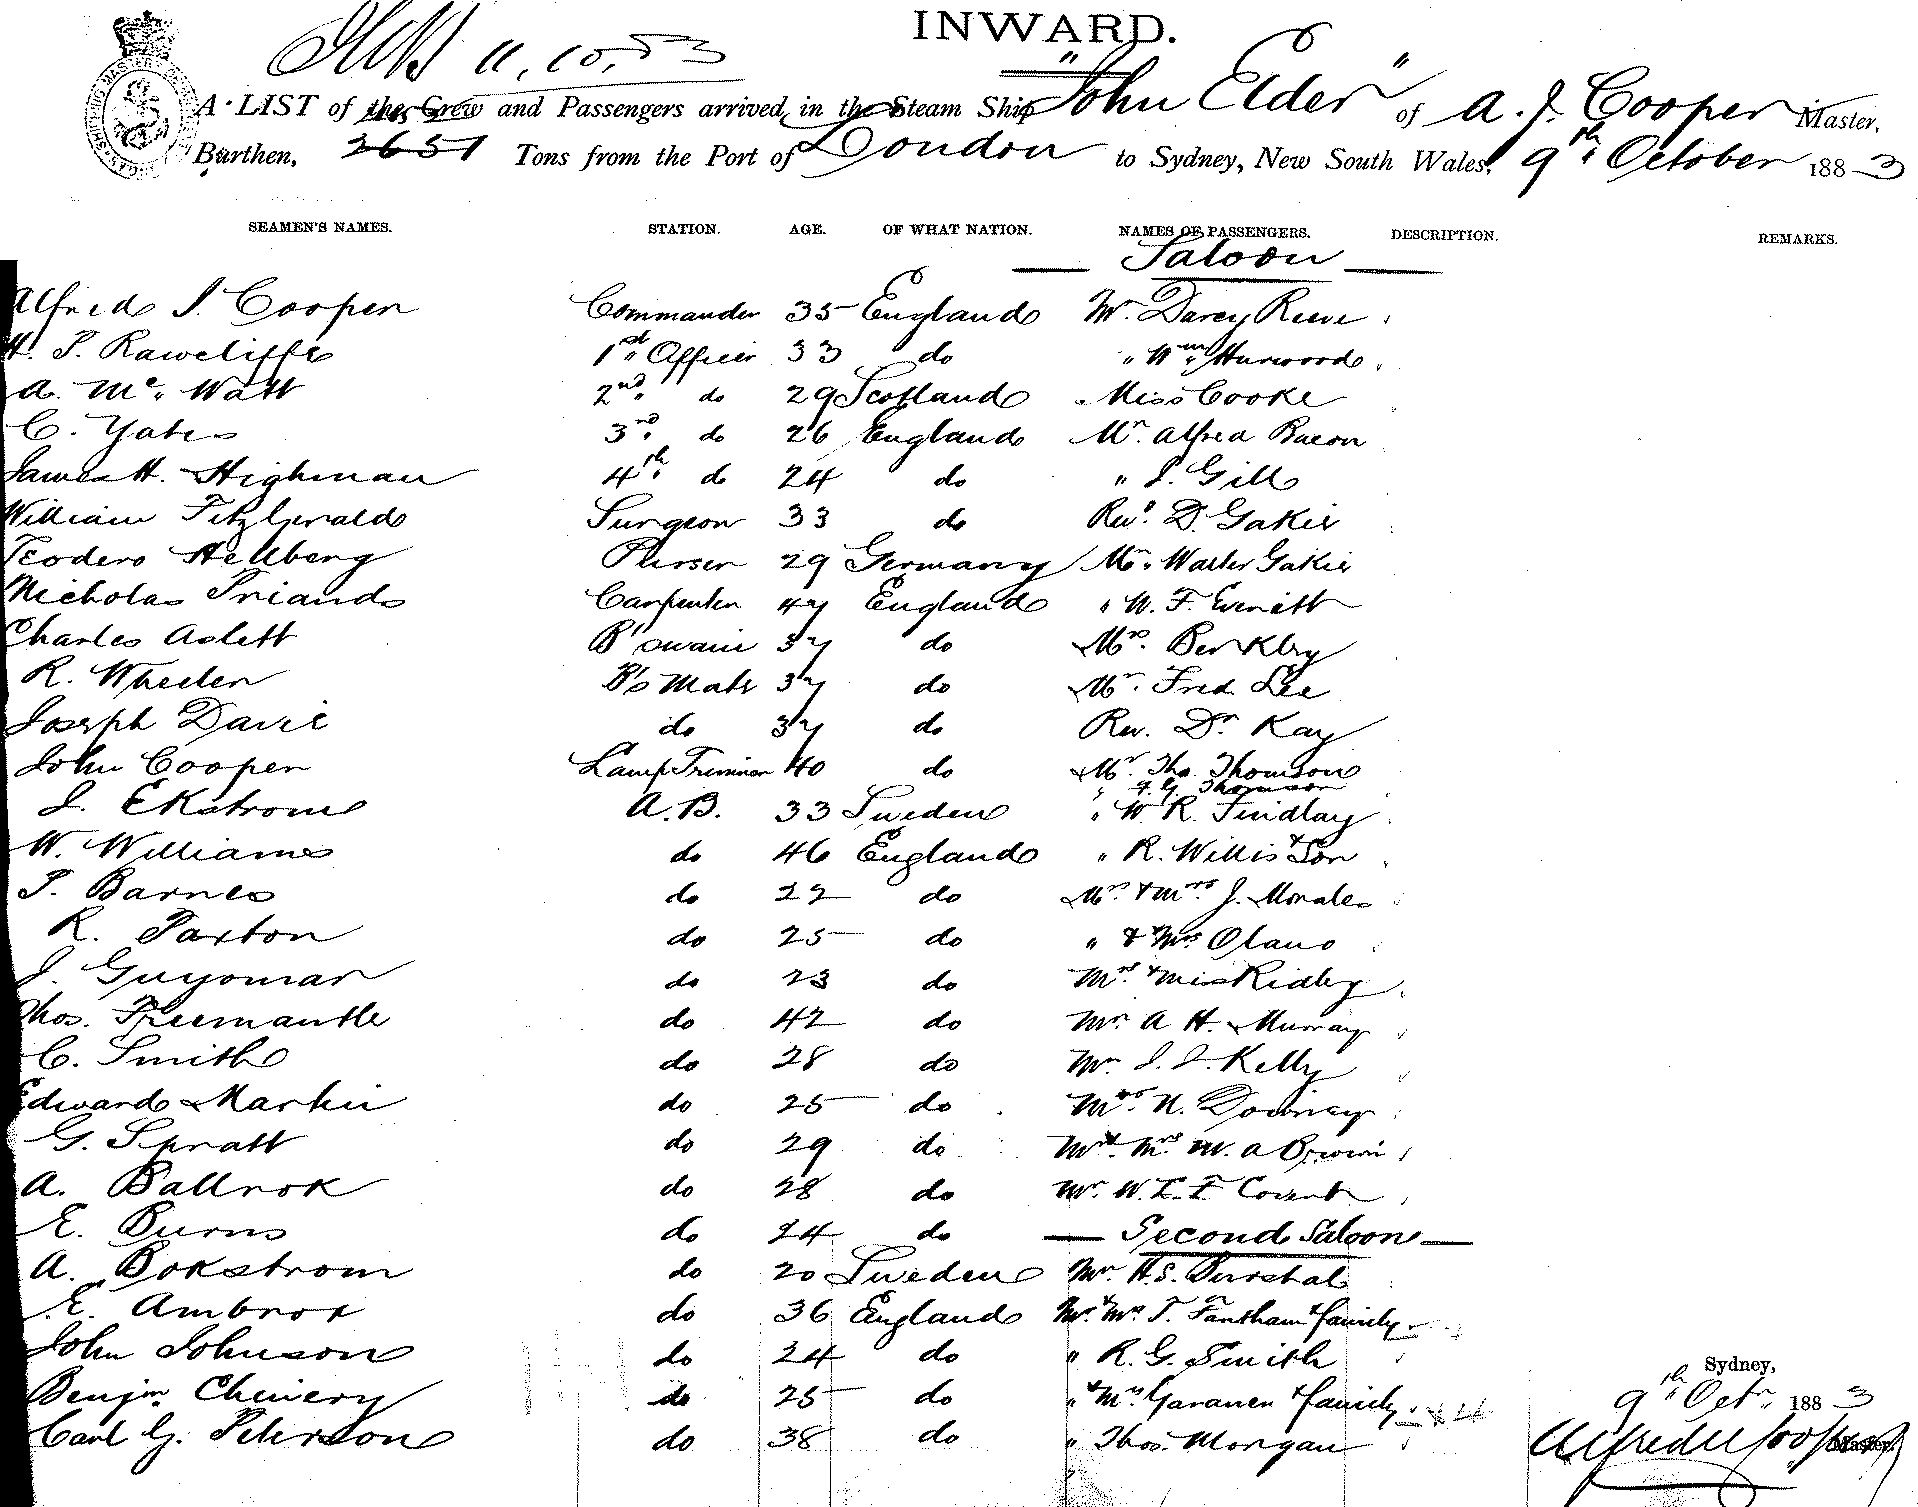 INWARD.
11.10.83
A LIST of the Crew and Passengers arrived in the Steam Ship "John Elder" of A. J. Cooper Master,
Burthen, Tons from the Port of London to Sydney, New South Wales, 9th October 1883
SEAMEN'S NAMES. STATION. AGE. OF WHAT NATION. NAMES OF PASSENGERS. DESCRIPTION. REMARKS.
Saloon
Alfred J. Cooper Commander 35 England Mr. Darcy Reeve
H. P. Rawcliffe 1st Officer 33 do " Wm. Hurwood
A. Mc. Watt 2nd do 29 Scotland Miss Cooke
C. Yates 3rd do 26 England Mr. Alfred Bacon
James H. Highman 4th do 24 do " J. Gill
William Fitzgerald Surgeon 33 do Revd. D. Gakie
Teodero Hellberg Purser 29 Germany Mr. Walter Gakie
Nicholas Friand Carpenter 47 England " W. F. Everett
Charles Aslett B'swain 37 do Mrs. Berkley
R. Wheeler B's Mate 37 do Mr. Fred Lee
Joseph Davie do 37 do Rev. Dr. Kay
John Cooper Lamp Trimmer 40 do Mr. Tho. Thomson
" Thomson
J. Ekstrom A.B. 33 Sweden " W. R. Findlay
W. Williams do 46 England " R. Willis & Son
P. Barnes do 22 do Mr. & Mrs. J. Morales
R. Paxton do 25 do " & Mrs Olano
J. Guyomar do 23 do Mrs & Miss Ridley
Thos. Freemantle do 42 do Mr. A. H. Murray
C. Smith do 28 do Mr. J. J. Kelly
Edward Martin do 25 do Mrs. N. Downey
G. Spratt do 29 do Mr & Mrs W. A.
A. Ballrok do 28 do Mr. W. L. F.
E. Burns do 24 do Second Saloon
A. Bokstrom do 20 Sweden Mr. H. S. Purshal
E. Ambrox do 36 England Mr. & Mrs T. Fantham & family
John Johnson do 24 do " R. G. Smith
Benjm. Chinery do 25 do " & Mrs Garanen & family
Carl G. Peterson do 38 do " Thos. Morgan
Sydney,
9th Octr. 1883
Alfred J Cooper Master.